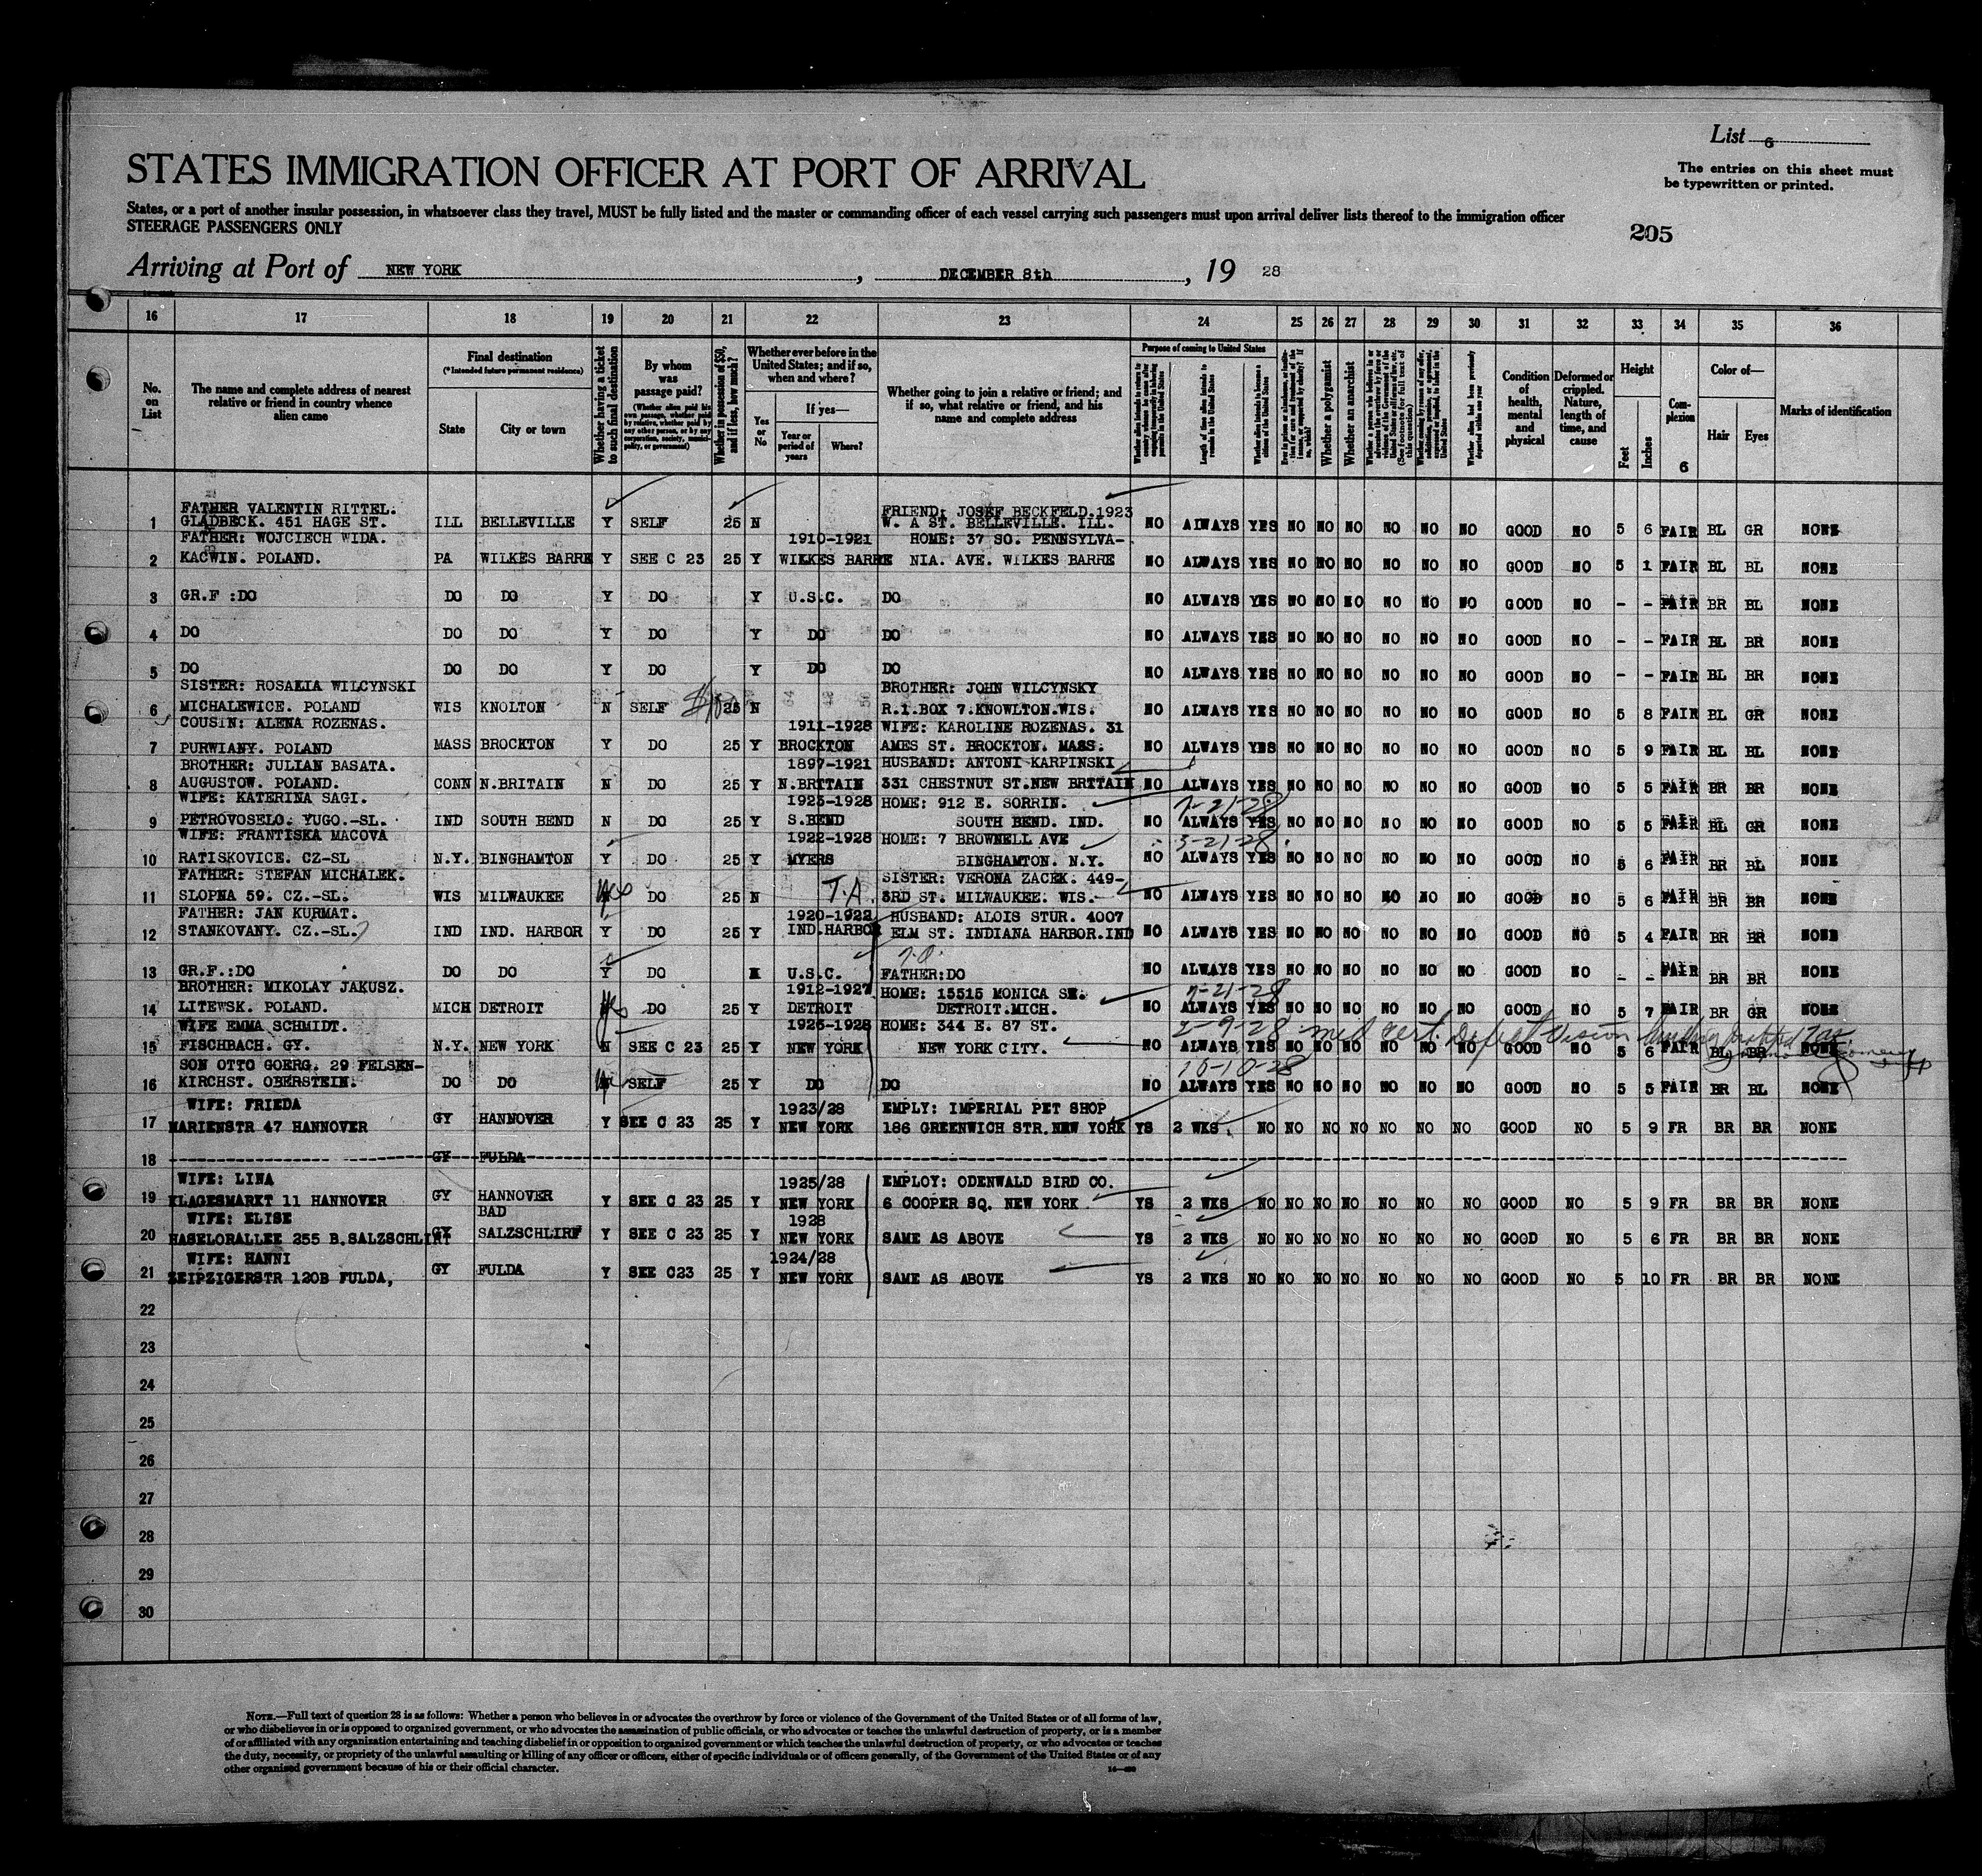 List 6
STATES IMMIGRATION OFFICER AT PORT OF ARRIVAL
The entries on this sheet must
be typewritten or printed.
States, or a port of another insular possession, in whatsoever class they travel, MUST be fully listed and the master or commanding officer of each vessel carrying such passengers must upon arrival deliver lists thereof to the immigration officer
STEERAGE PASSENGERS ONLY
205
Arriving at Port of NEW YORK, DECEMBER 8th, 19 28
16 17 18 19 20 21 22 23 24 25 26 27 28 29 30 31 32 33 34 35 36
No. on List
The name and complete address of nearest relative or friend in country whence alien came
Final destination
(*Intended future permanent residence)
State
City or town
Whether having a ticket to such final destination
By whom was passage paid?
(Whether alien paid his own passage, whether paid by relative, whether paid by any other person, or by any corporation, society, municipality, or government)
Whether in possession of $50, and if less, how much?
Whether ever before in the United States; and if so, when and where?
Yes or No
If yes—
Year or period of years
Where?
Whether going to join a relative or friend; and if so, what relative or friend, and his name and complete address
Purpose of coming to United States
Length of time alien intends to remain in the United States
Whether alien intends to become a citizen of the United States
Whether a polygamist
Whether an anarchist
Condition of health, mental and physical
Deformed or crippled. Nature, length of time, and cause
Height
Feet
Inches
Complexion
6
Color of—
Hair
Eyes
Marks of identification
FATHER VALENTIN RITTEL. FRIEND: JOSEF BECKFELD.1923
1 GLADBECK. 451 HAGE ST. ILL BELLEVILLE Y SELF 25 N W. A ST. BELLEVILLE. ILL. NO ALWAYS YES NO NO NO NO NO NO GOOD NO 5 6 FAIR BL GR NONE
FATHER: WOJCIECH WIDA. 1910-1921 HOME: 37 SO. PENNSYLVA-
2 KACWIN. POLAND. PA WILKES BARRE Y SEE C 23 25 Y WILKES BARRE NIA. AVE. WILKES BARRE NO ALWAYS YES NO NO NO NO NO NO GOOD NO 5 1 FAIR BL BL NONE
3 GR.F :DO DO DO Y DO Y U.S.C. DO NO ALWAYS YES NO NO NO NO NO NO GOOD NO - - FAIR BR BL NONE
4 DO DO DO Y DO Y DO DO NO ALWAYS YES NO NO NO NO NO NO GOOD NO - - FAIR BL BR NONE
5 DO DO DO Y DO Y DO DO NO ALWAYS YES NO NO NO NO NO NO GOOD NO - - FAIR BL BR NONE
SISTER: ROSALIA WILCYNSKI BROTHER: JOHN WILCYNSKY
6 MICHALEWICE. POLAND WIS KNOLTON N SELF 25 N R.1.BOX 7.KNOWLTON.WIS. NO ALWAYS YES NO NO NO NO NO NO GOOD NO 5 8 FAIR BL GR NONE
COUSIN: ALENA ROZENAS. 1911-1928 WIFE: KAROLINE ROZENAS. 31
7 PURWIANY. POLAND MASS BROCKTON Y DO 25 Y BROCKTON AMES ST. BROCKTON. MASS. NO ALWAYS YES NO NO NO NO NO NO GOOD NO 5 9 FAIR BL BL NONE
BROTHER: JULIAN BASATA. 1897-1921 HUSBAND: ANTONI KARPINSKI
8 AUGUSTOW. POLAND. CONN N.BRITAIN N DO 25 Y N.BRITAIN 331 CHESTNUT ST.NEW BRTTAIN NO ALWAYS YES NO NO NO NO NO NO GOOD NO 5 5 FAIR BR BR NONE
WIFE: KATERINA SAGI. 1923-1928 HOME: 912 E. SORRIN. 7-21-28
9 PETROVOSELO. YUGO.-SL. IND SOUTH BEND N DO 25 Y S.BEND SOUTH BEND. IND. NO ALWAYS YES NO NO NO NO NO NO GOOD NO 5 5 FAIR BL GR NONE
WIFE: FRANTISKA MACOVA 1922-1928 HOME: 7 BROWNELL AVE 3-21-28
10 RATISKOVICE. CZ-SL N.Y. BINGHAMTON Y DO 25 Y MYERS BINGHAMTON. N.Y. NO ALWAYS YES NO NO NO NO NO NO GOOD NO 5 6 FAIR BR BL NONE
FATHER: STEFAN MICHALEK. SISTER: VERONA ZACEK. 449-
11 SLOPNA 59. CZ.-SL. WIS MILWAUKEE yes DO 25 N T.A. 3RD ST. MILWAUKEE. WIS. NO ALWAYS YES NO NO NO NO NO NO GOOD NO 5 6 FAIR BR BR NONE
FATHER: JAN KURMAT. 1920-1922 HUSBAND: ALOIS STUR. 4007
12 STANKOVANY. CZ.-SL. IND IND. HARBOR Y DO 25 Y IND.HARBOR ELM ST. INDIANA HARBOR.IND NO ALWAYS YES NO NO NO NO NO NO GOOD NO 5 4 FAIR BR BR NONE
13 GR.F.:DO DO DO Y DO U.S.C. FATHER:DO NO ALWAYS YES NO NO NO NO NO NO GOOD NO - - FAIR BR BR NONE
BROTHER: MIKOLAY JAKUSZ. 1912-1927 HOME: 15515 MONICA 7-21-28
14 LITEWSK. POLAND. MICH DETROIT yes DO 25 Y DETROIT DETROIT.MICH. NO ALWAYS YES NO NO NO NO NO NO GOOD NO 5 7 FAIR BR GR NONE
WIFE EMMA SCHMIDT. 1926-1928 HOME: 344 E. 87 ST. 2-9-28 med cert. Defect vision
15 FISCHBACH. GY. N.Y. NEW YORK N SEE C 23 25 Y NEW YORK NEW YORK CITY. NO ALWAYS YES NO NO NO NO NO NO GOOD NO 5 6 FAIR BL BR NONE
SON OTTO GOERG. 29 FELSEN- 10-10-28
16 KIRCHST. OBERSTEIN. DO DO SELF 25 Y DO DO NO ALWAYS YES NO NO NO NO NO NO GOOD NO 5 5 FAIR BR BL NONE
WIFE: FRIEDA 1923/28 EMPLY: IMPERIAL PET SHOP
17 MARIENSTR 47 HANNOVER GY HANNOVER Y SEE C 23 25 Y NEW YORK 186 GREENWICH STR.NEW YORK YS 2 WKS. NO NO NO NO NO NO NO GOOD NO 5 9 FR BR BR NONE
18 GY FULDA
WIFE: LINA 1925/28 EMPLOY: ODENWALD BIRD CO.
19 KLAGESMARKT 11 HANNOVER GY HANNOVER Y SEE C 23 25 Y NEW YORK 6 COOPER SQ. NEW YORK YS 2 WKS NO NO NO NO NO NO NO GOOD NO 5 9 FR BR BR NONE
WIFE: ELISE BAD 1928
20 HASELORALLEE 255 B.SALZSCHLIRF GY SALZSCHLIRF Y SEE C 23 25 Y NEW YORK SAME AS ABOVE YS 2 WKS NO NO NO NO NO NO NO GOOD NO 5 6 FR BR BR NONE
WIFE: HANNI 1924/28
21 ZEIPZIGERSTR 120B FULDA, GY FULDA Y SEE C23 25 Y NEW YORK SAME AS ABOVE YS 2 WKS NO NO NO NO NO NO NO GOOD NO 5 10 FR BR BR NONE
22
23
24
25
26
27
28
29
30
NOTE.—Full text of question 28 is as follows: Whether a person who believes in or advocates the overthrow by force or violence of the Government of the United States or of all forms of law,
or who disbelieves in or is opposed to organized government, or who advocates the assassination of public officials, or who advocates or teaches the unlawful destruction of property, or is a member
of or affiliated with any organization entertaining and teaching disbelief in or opposition to organized government or which teaches the unlawful destruction of property, or who advocates or teaches
the duty, necessity, or propriety of the unlawful assaulting or killing of any officer or officers, either of specific individuals or of officers generally, of the Government of the United States or of any
other organized government because of his or their official character.